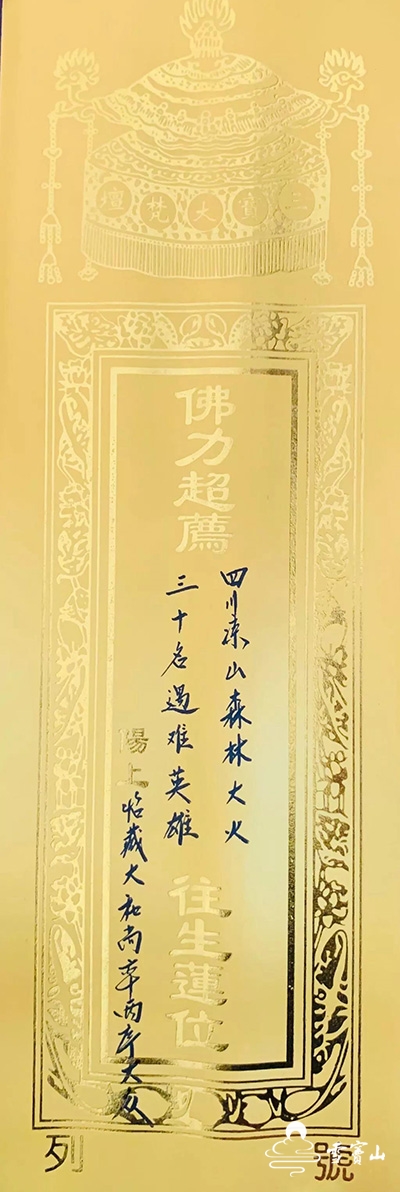 三寶大梵壇
佛力超薦
四川凉山森林大火
三十名遇难英雄
往生蓮位
陽上
怡藏大和尚率两序大众
列
號
雪竇山